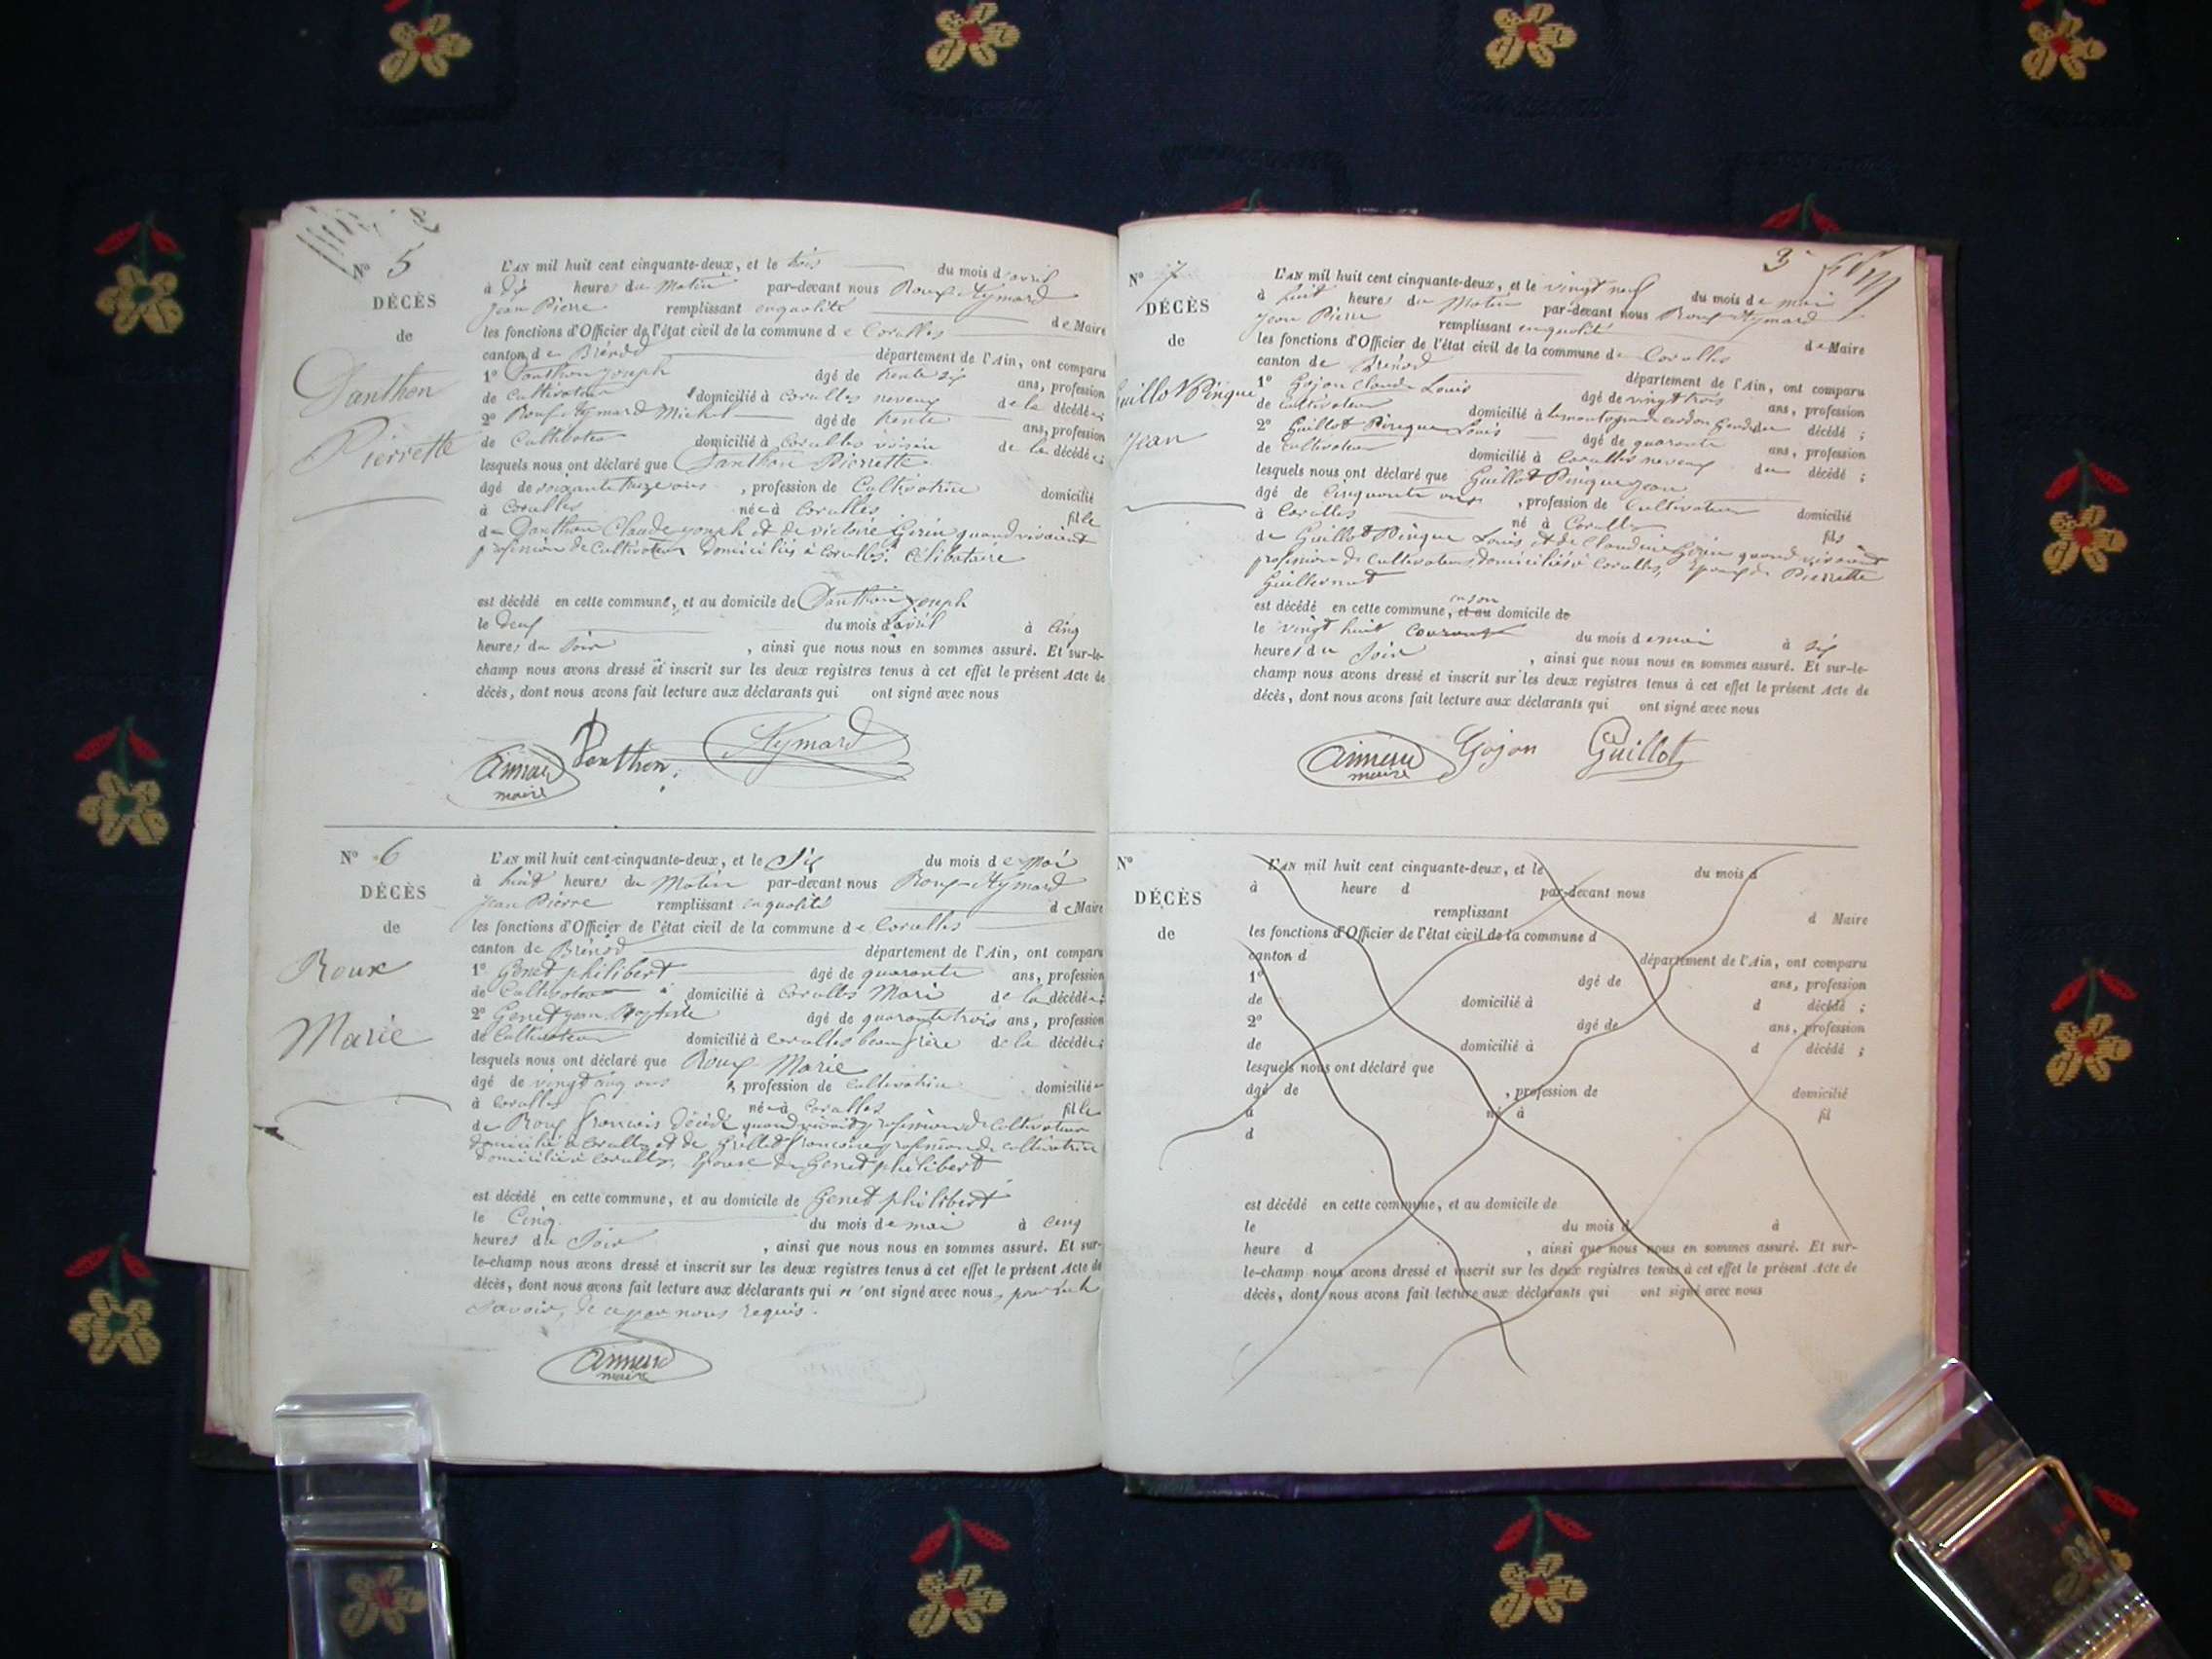 Nº 5
DÉCÈS
de
Danthon
Pierrette
L'AN mil huit cent cinquante-deux, et le trois du mois d'avril
à dix heures du Matin par-devant nous Roux-Aymard
Jean Pierre remplissant en qualité de Maire
les fonctions d'Officier de l'état civil de la commune de Corcelles
canton de Brénod département de l'Ain, ont comparu
1º Danthon joseph âgé de trente six ans, profession
de Cultivateur domicilié à Corcelles neveux de la décédée ;
2º Roux-Aymard Michel âgé de trente ans, profession
de Cultivateur domicilié à Corcelles voisin de la décédée ;
lesquels nous ont déclaré que Danthon Pierrette
âgé de soixante treize ans , profession de Cultivatrice domicilié
à Corcelles née à Corcelles fille
de Danthon Claude joseph et de victoire Gérin quand vivaient
profession de Cultivateur domiciliés à Corcelles. Célibataire
est décédé en cette commune, et au domicile de Danthon joseph
le deux du mois d'avril à Cinq
heures du Soir , ainsi que nous nous en sommes assuré. Et sur-le-
champ nous avons dressé et inscrit sur les deux registres tenus à cet effet le présent Acte de
décès, dont nous avons fait lecture aux déclarants qui ont signé avec nous
Danthon Aymard
maire
Nº 6
DÉCÈS
de
Roux
Marie
L'AN mil huit cent cinquante-deux, et le Six du mois de Mai
à huit heures du Matin par-devant nous Roux-Aymard
Jean Pierre remplissant en qualité de Maire
les fonctions d'Officier de l'état civil de la commune de Corcelles
canton de Brénod département de l'Ain, ont comparu
1º Genet philibert âgé de quarante ans, profession
de Cultivateur domicilié à Corcelles Mari de la décédée ;
2º Genet jean Baptiste âgé de quarante trois ans, profession
de Cultivateur domicilié à Corcelles beau frère de la décédée ;
lesquels nous ont déclaré que Roux Marie
âgé de vingt cinq ans , profession de Cultivatrice domiciliée
à Corcelles née à Corcelles fille
de Roux françois décédé quand vivait profession de Cultivateur
domicilié à Corcelles et de Grillet françoise profession de cultivatrice
domiciliée à Corcelles, Epouse de Genet philibert
est décédé en cette commune, et au domicile de Genet philibert
le Cinq du mois de mai à cinq
heures du Soir , ainsi que nous nous en sommes assuré. Et sur-
le-champ nous avons dressé et inscrit sur les deux registres tenus à cet effet le présent Acte de
décès, dont nous avons fait lecture aux déclarants qui n'ont signé avec nous, pour ne le
Savoir, de ce par nous requis.
maire
3
Nº 7
DÉCÈS
de
Guillot Pinque
Jean
L'AN mil huit cent cinquante-deux, et le vingt neuf du mois de mai
à huit heures du Matin par-devant nous Roux-Aymard
Jean Pierre remplissant en qualité de Maire
les fonctions d'Officier de l'état civil de la commune de Corcelles
canton de Brénod département de l'Ain, ont comparu
1º Gojon Claude Louis âgé de vingt trois ans, profession
de cultivateur domicilié à du décédé ;
2º Guillot Pinque Louis âgé de quarante ans, profession
de cultivateur domicilié à Corcelles neveux du décédé ;
lesquels nous ont déclaré que Guillot Pinque jean
âgé de Cinquante ans , profession de Cultivateur domicilié
à Corcelles né à Corcelles fils
de Guillot Pinque Louis et de Claudine quand vivaient
profession de Cultivateurs domiciliés à Corcelles, Epoux de Pierrette
Guillermet
est décédé en cette commune, en son et au domicile de
le vingt huit courant du mois de mai à six
heures du Soir , ainsi que nous nous en sommes assuré. Et sur-le-
champ nous avons dressé et inscrit sur les deux registres tenus à cet effet le présent Acte de
décès, dont nous avons fait lecture aux déclarants qui ont signé avec nous
maire Gojon Guillot
Nº
DÉCÈS
de
L'AN mil huit cent cinquante-deux, et le du mois d
à heure d par-devant nous
remplissant d Maire
les fonctions d'Officier de l'état civil de la commune d
canton d département de l'Ain, ont comparu
1º âgé de ans, profession
de domicilié à d décédé ;
2º âgé de ans, profession
de domicilié à d décédé ;
lesquels nous ont déclaré que
âgé de , profession de domicilié
à né à fil
d
est décédé en cette commune, et au domicile de
le du mois d à
heure d , ainsi que nous nous en sommes assuré. Et sur-
le-champ nous avons dressé et inscrit sur les deux registres tenus à cet effet le présent Acte de
décès, dont nous avons fait lecture aux déclarants qui ont signé avec nous